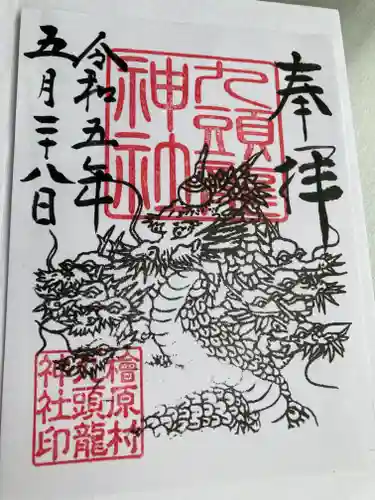 奉拝
九頭龍
神社
令和五年
五月二十八日
檜原村
九頭龍
神社印